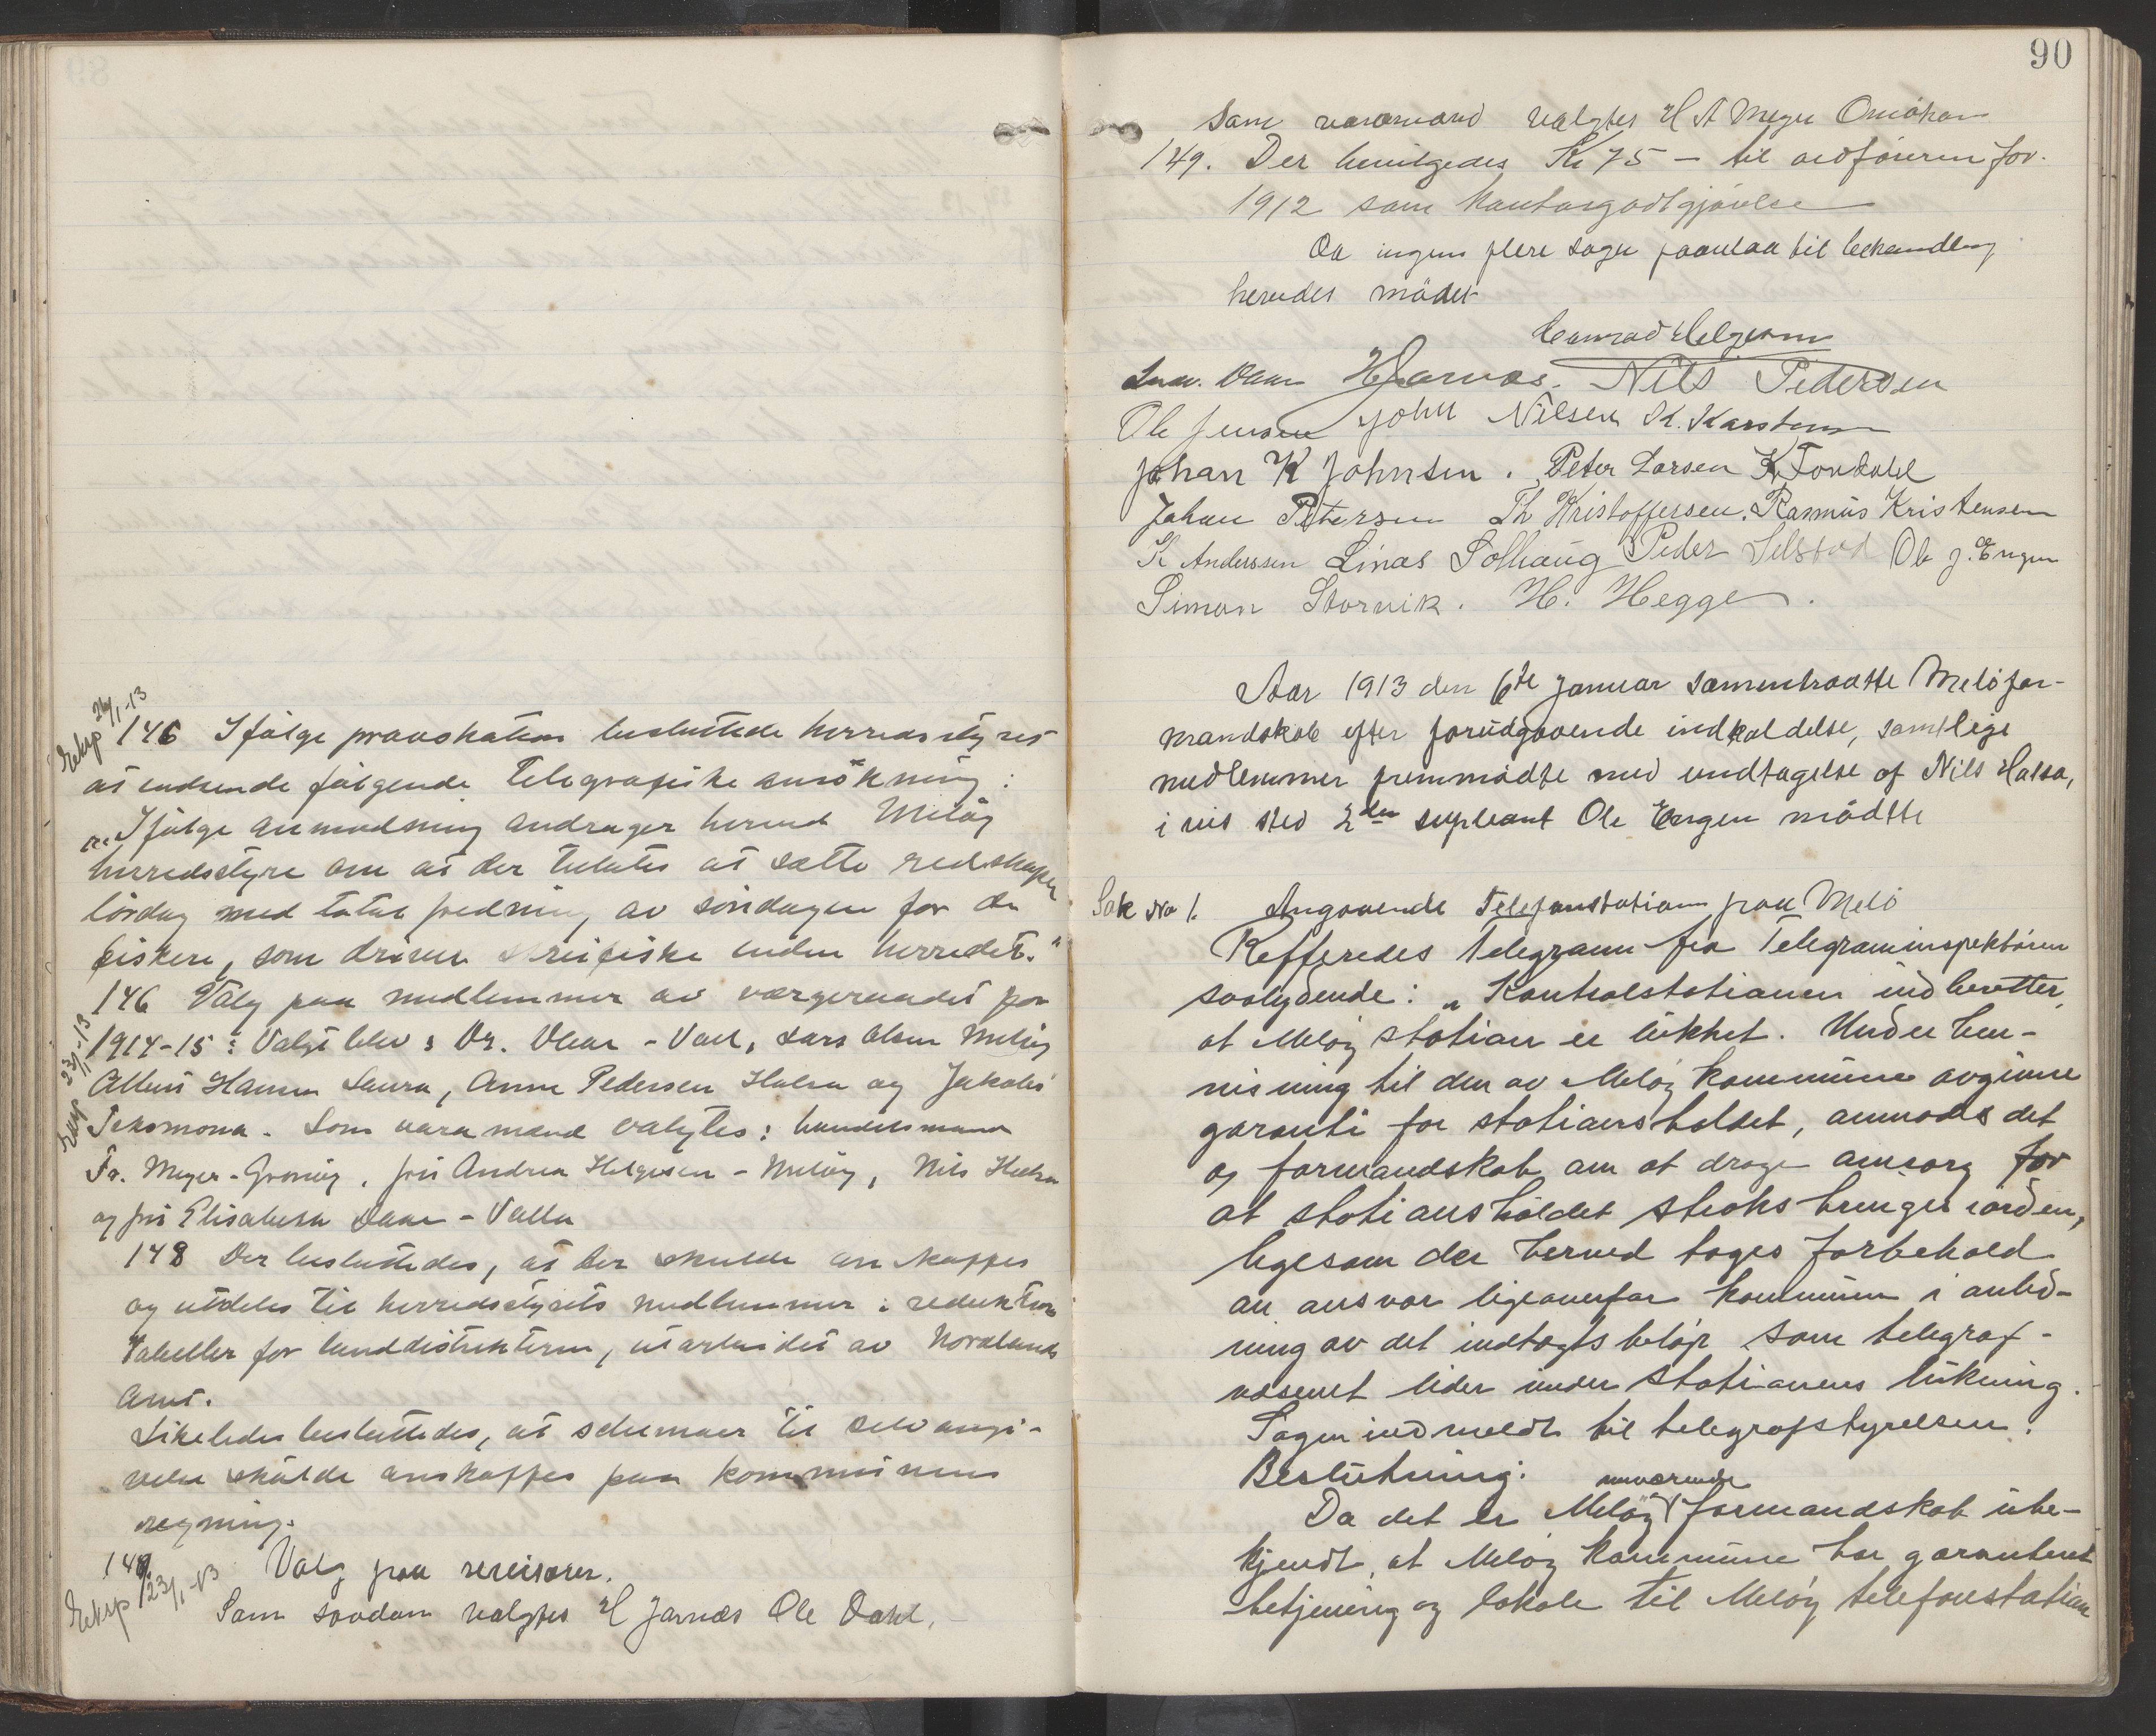 Eksp 24/1-13
146 Ifølge provokation besluttede herredsstyret
at indsende følgende telegrafiske ansøkning:
"Ifølge anmodning andrager herved Meløy
herredsstyre om at der tillates at sætte redskaper
lørdag med total fredning av søndagen for de
fiskere, som driver skreifiske inden herredet."
146 Valg paa medlemmer av værgeraadet for
Eksp 23/1-13
1914-15: Valgt blev: Dr. Vaar - Vall, Lars Olsen Meløy
Hansen Saura, Anna Pedersen Halsa og Jakob
Teksmona. Som varamænd valgtes: handelsmand
Fr. Meyer-Grønøy, fru Andrea Helgesen - Meløy, Nils
og fru Elisabeth - Valla
148 Der besluttedes, at der skulde anskaffes
og utdeles til herredsstyrets medlemmer: reduktions
tabeller for landdistrikterne, utarbeidet av Nordlands
Amt.
Likeledes besluttedes, at schemaer til selvangi-
velse skulde anskaffes paa kommunens
regning.
148. Valg paa revisorer.
Eksp 23/1-13
Som saadan valgtes H Jarnæs Ole Dahl.
90
Som varamand valgtes H A Meyer
149. Der bevilgedes Kr 75 - til ordføreren for
1912 som kontorgodtgjørelse
Da ingen flere sager forelaa til behandling
hevedes mødet
Conrad Helgesen
HJarnæs. Nils Pedersen
Ole Jensen John Nilsen K. Karstensen
Johan K Johnsen. Peter Larsen K Fordahl
Johan Petersen Th Kristoffersen. Rasmus Kristensen
K Anderssen Linas Solhaug Peder Selstad Ole J. Engen
Simon Storvik. H. Hegge.
Aar 1913 den 6te Januar samentraatte Meløfor-
mandskab efter forudgaaende indkaldelse, samtlige
medlemmer fremmødte med undtagelse af Nils Halsa,
i vis sted 2den supleant Ole Engen mødtte
Sak No 1. Angaaende Telefonstation paa Melø
Refferedes Telegram fra Telegraminspektøren
saalydende: "Kontrolstationen indberetter,
at Meløy station er lukket. Under hen-
visning til den av Meløy kommune avgivne
garanti for stationsholdet, anmodes det
og formandskab om at drage omsorg for
at stationsholdet straks bringes iorden,
ligesom der herved tages forbehold
an ansvar ligeoverfor kommunen i anled-
ning av det indtægtsbeløp som telegraf-
væsenet lider under stationens lukning.
Sagen indmeldt til telegrafstyrelsen.
Beslutning:
Da det er Meløy nuværende formandskab ube-
kjendt, at Meløy kommune har garanteret
betjening og lokale til Meløy telefonstation